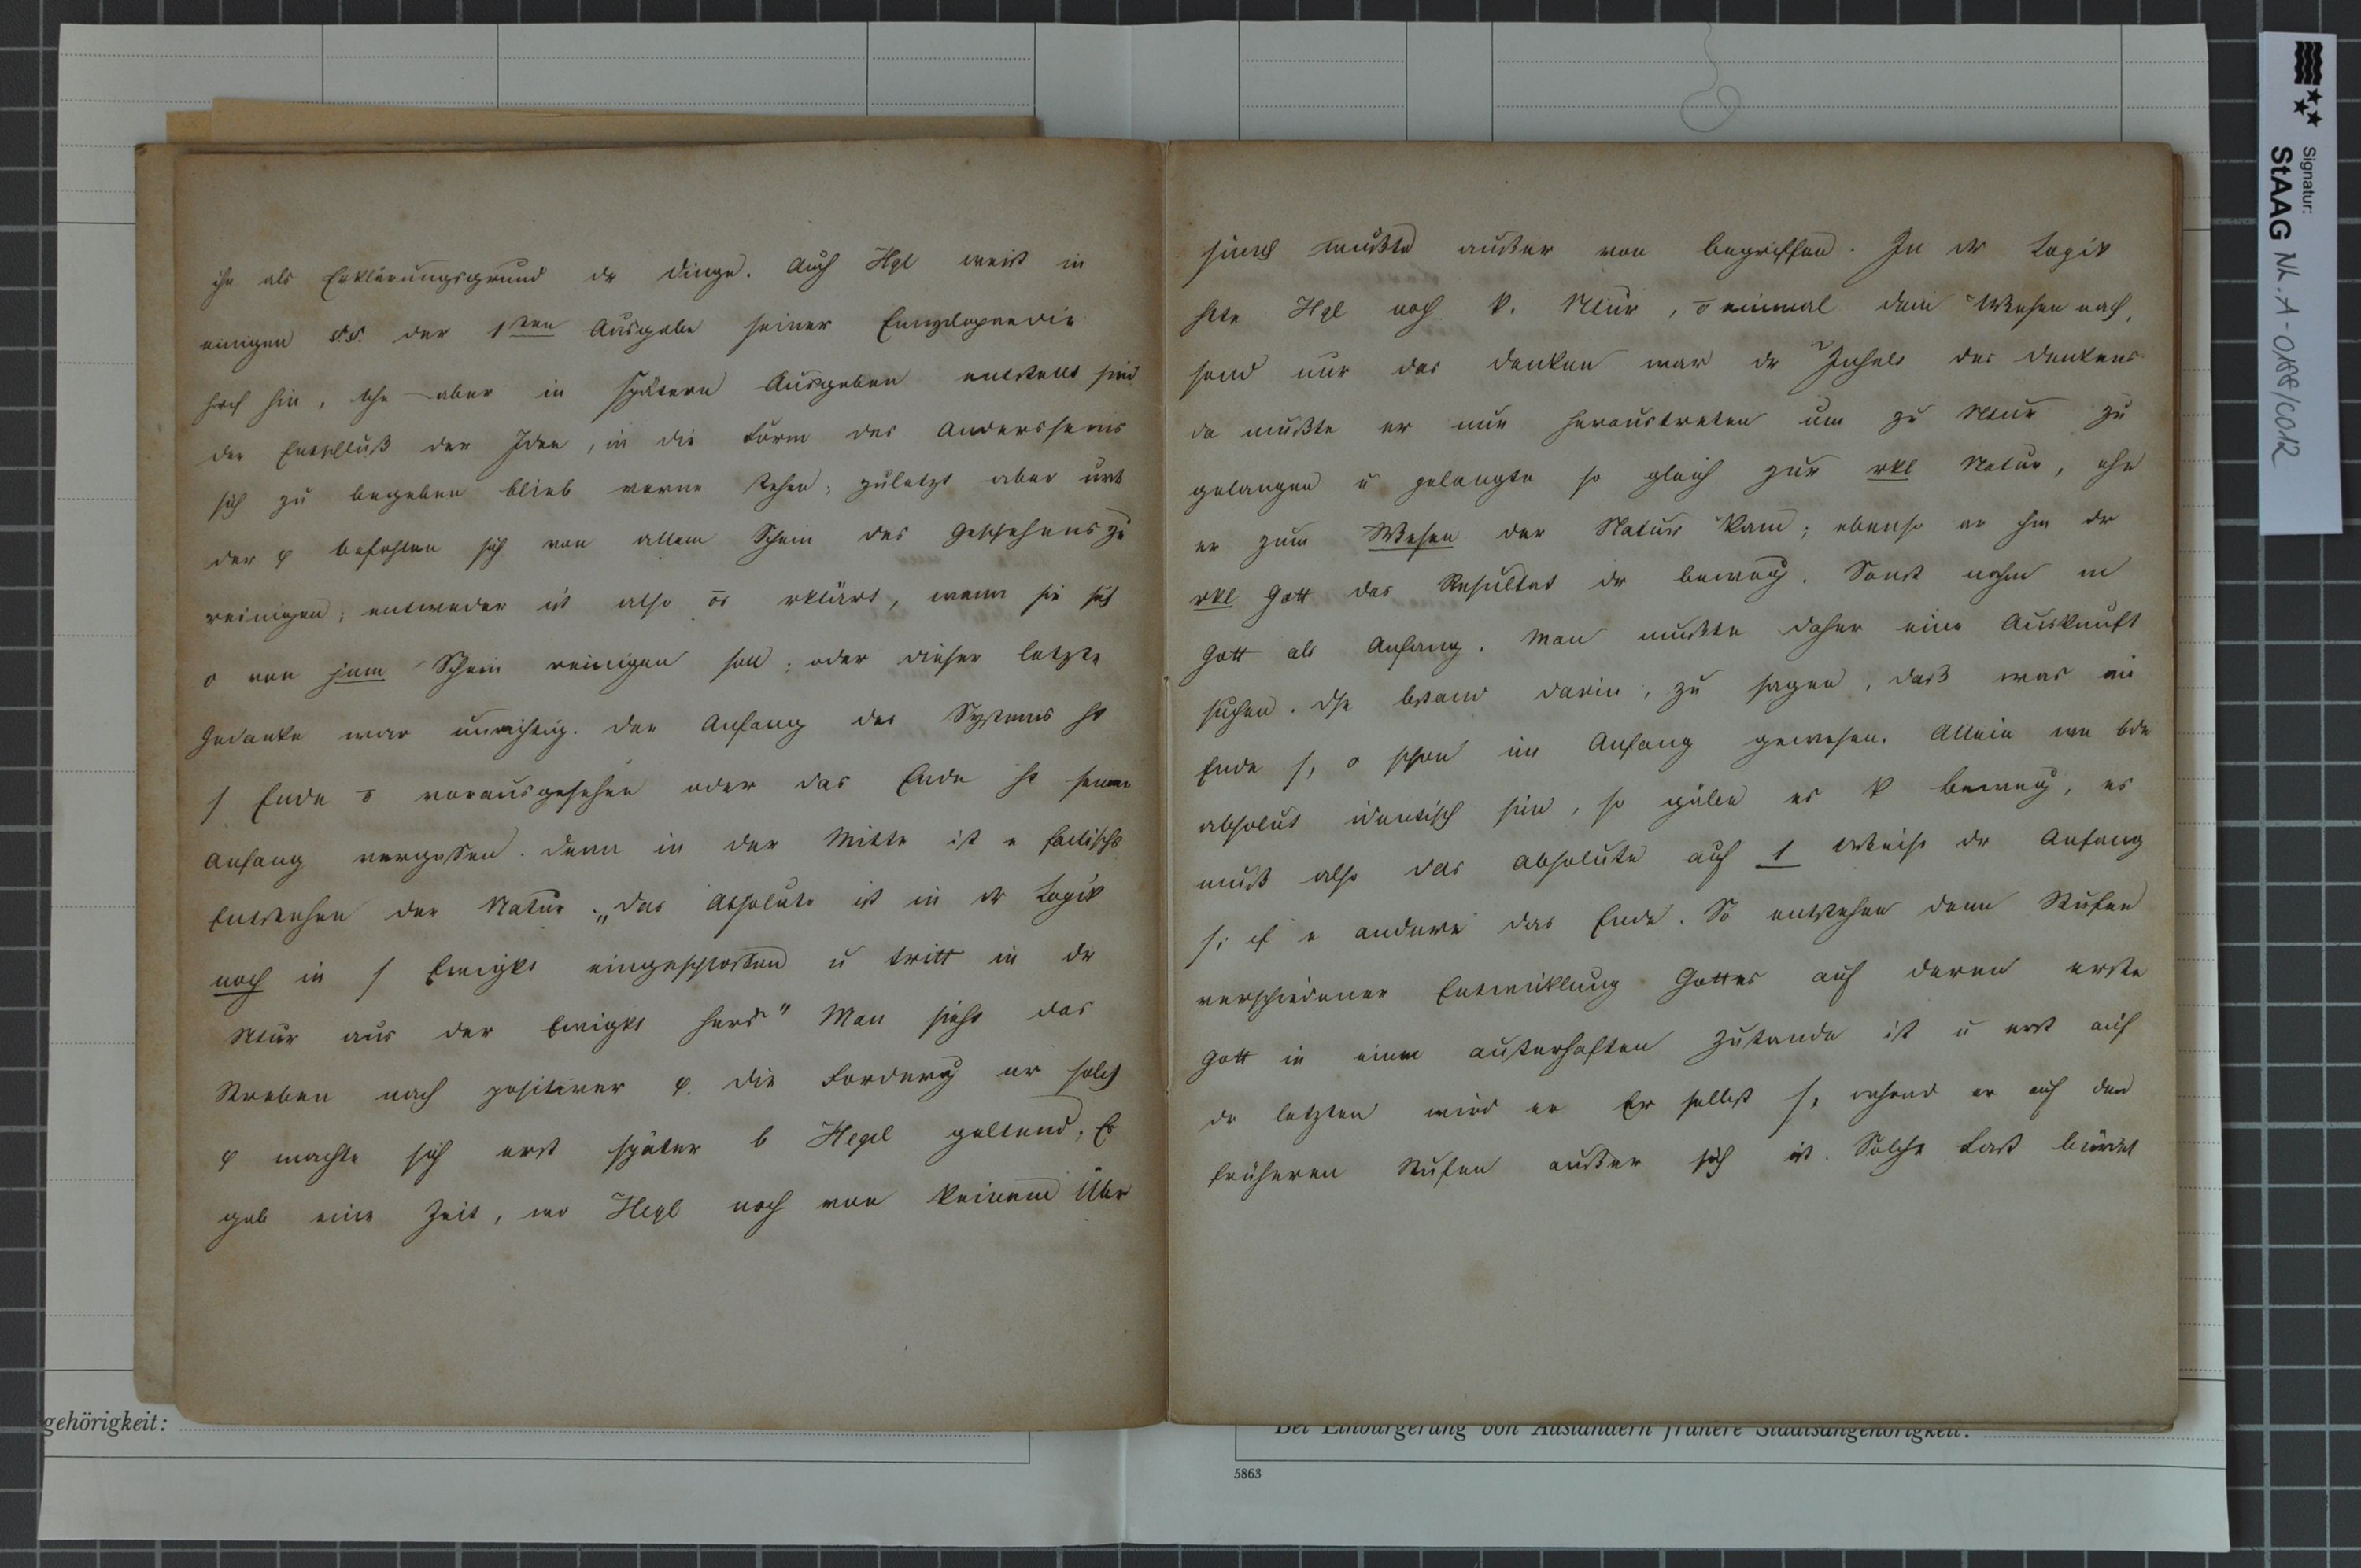 ihn als Erklärungsgrund dr Dinge. Auch Hgl weist in
einigen §.§. der 1ten Ausgabe seiner Encyclopaedie
hin, aber in spätern Ausgaben entstellt sind
der Entschluß der Idee, in die Form des Andersseins
sich zu begeben blieb stehen; zuletzt aber
der φ befohlen sich von allem Schein des Geschehens zu
reinigen; entweder ist also erklärt, wenn sie sich
o von jem Schein reinigen soll; oder dieser letzte
Gedanke war unrichtig. Der Anfang des Systems ht
s Ende vorausgesehen oder das Ende ht seinen
Anfang vergessen. Denn in der Mitte ist e
Entstehen der Natur. „Das Absolute ist in dr Logik
noch in s Ewigkt eingeschlossen u tritt in dr
Ntur aus der Ewigkt " Man sieht das
Streben nach positiver φ. Die Forderg er solch
φ machte sich erst später b Hegel geltend; Es
gab eine Zeit, wo Hegl noch von keinem Über
mußte außer von Begriffen. In dr Logik
htte Hgl noch k. Ntur, einmal dem Wesen nach,
sond nur das Denken war dr Inhalt des Denkens
da mußte er nun heraustreten um zu Ntur zu
gelangen u gelangte so gleich zur rkl Natur, ehe
er zum Wesen der Natur kam; ebenso er ihm dr
rkl Gott das Resultat dr Beweg. Sonst nahm m
Gott als Anfang. Man mußte daher eine Auskunft
suchen. Dse bstand darin, zu sagen, daß was am
Ende s, o schon im Anfang gewesen. Allein wen bde
absolut identisch sind, so gäbe es k Beweg, es
muß also das Absolute auf 1 Weise dr Anfang
s; auf e andere das Ende. So entstehen denn Stufen
verschiedener Entwicklung Gottes auf deren erste
Gott in einem Zustande ist u erst auf
dr letzten wird er Er selbst s, während er auf den
früheren Stufen außer sich ist. Solche Last bürdet
gehörigkeit:
Bei Einbürgerung von Ausländern frühere Staatsangehörigkeit:
5863
Signatur:
StAAG NL.A-0188/0012